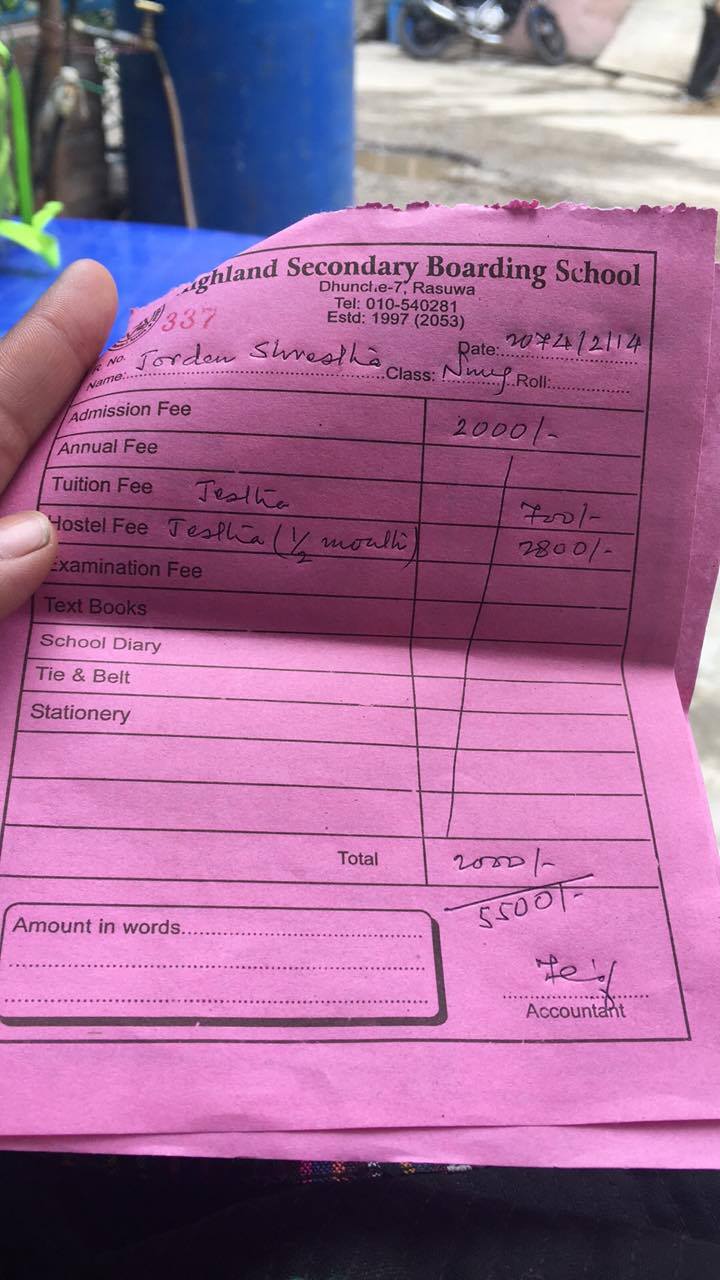 ighland Secondary Boarding School
Dhunche-7, Rasuwa
Tel: 010-540281
Estd: 1997 (2053)
337
R. No. Date: 2074/2/14
Name: Jorden Shrestha Class: Nur Roll:
Admission Fee 2000/-
Annual Fee
Tuition Fee Jestha 700/-
Hostel Fee Jestha (1/2 month) 2800/-
Examination Fee
Text Books
School Diary
Tie & Belt
Stationery
Total 2000/-
5500/-
Amount in words
Accountant